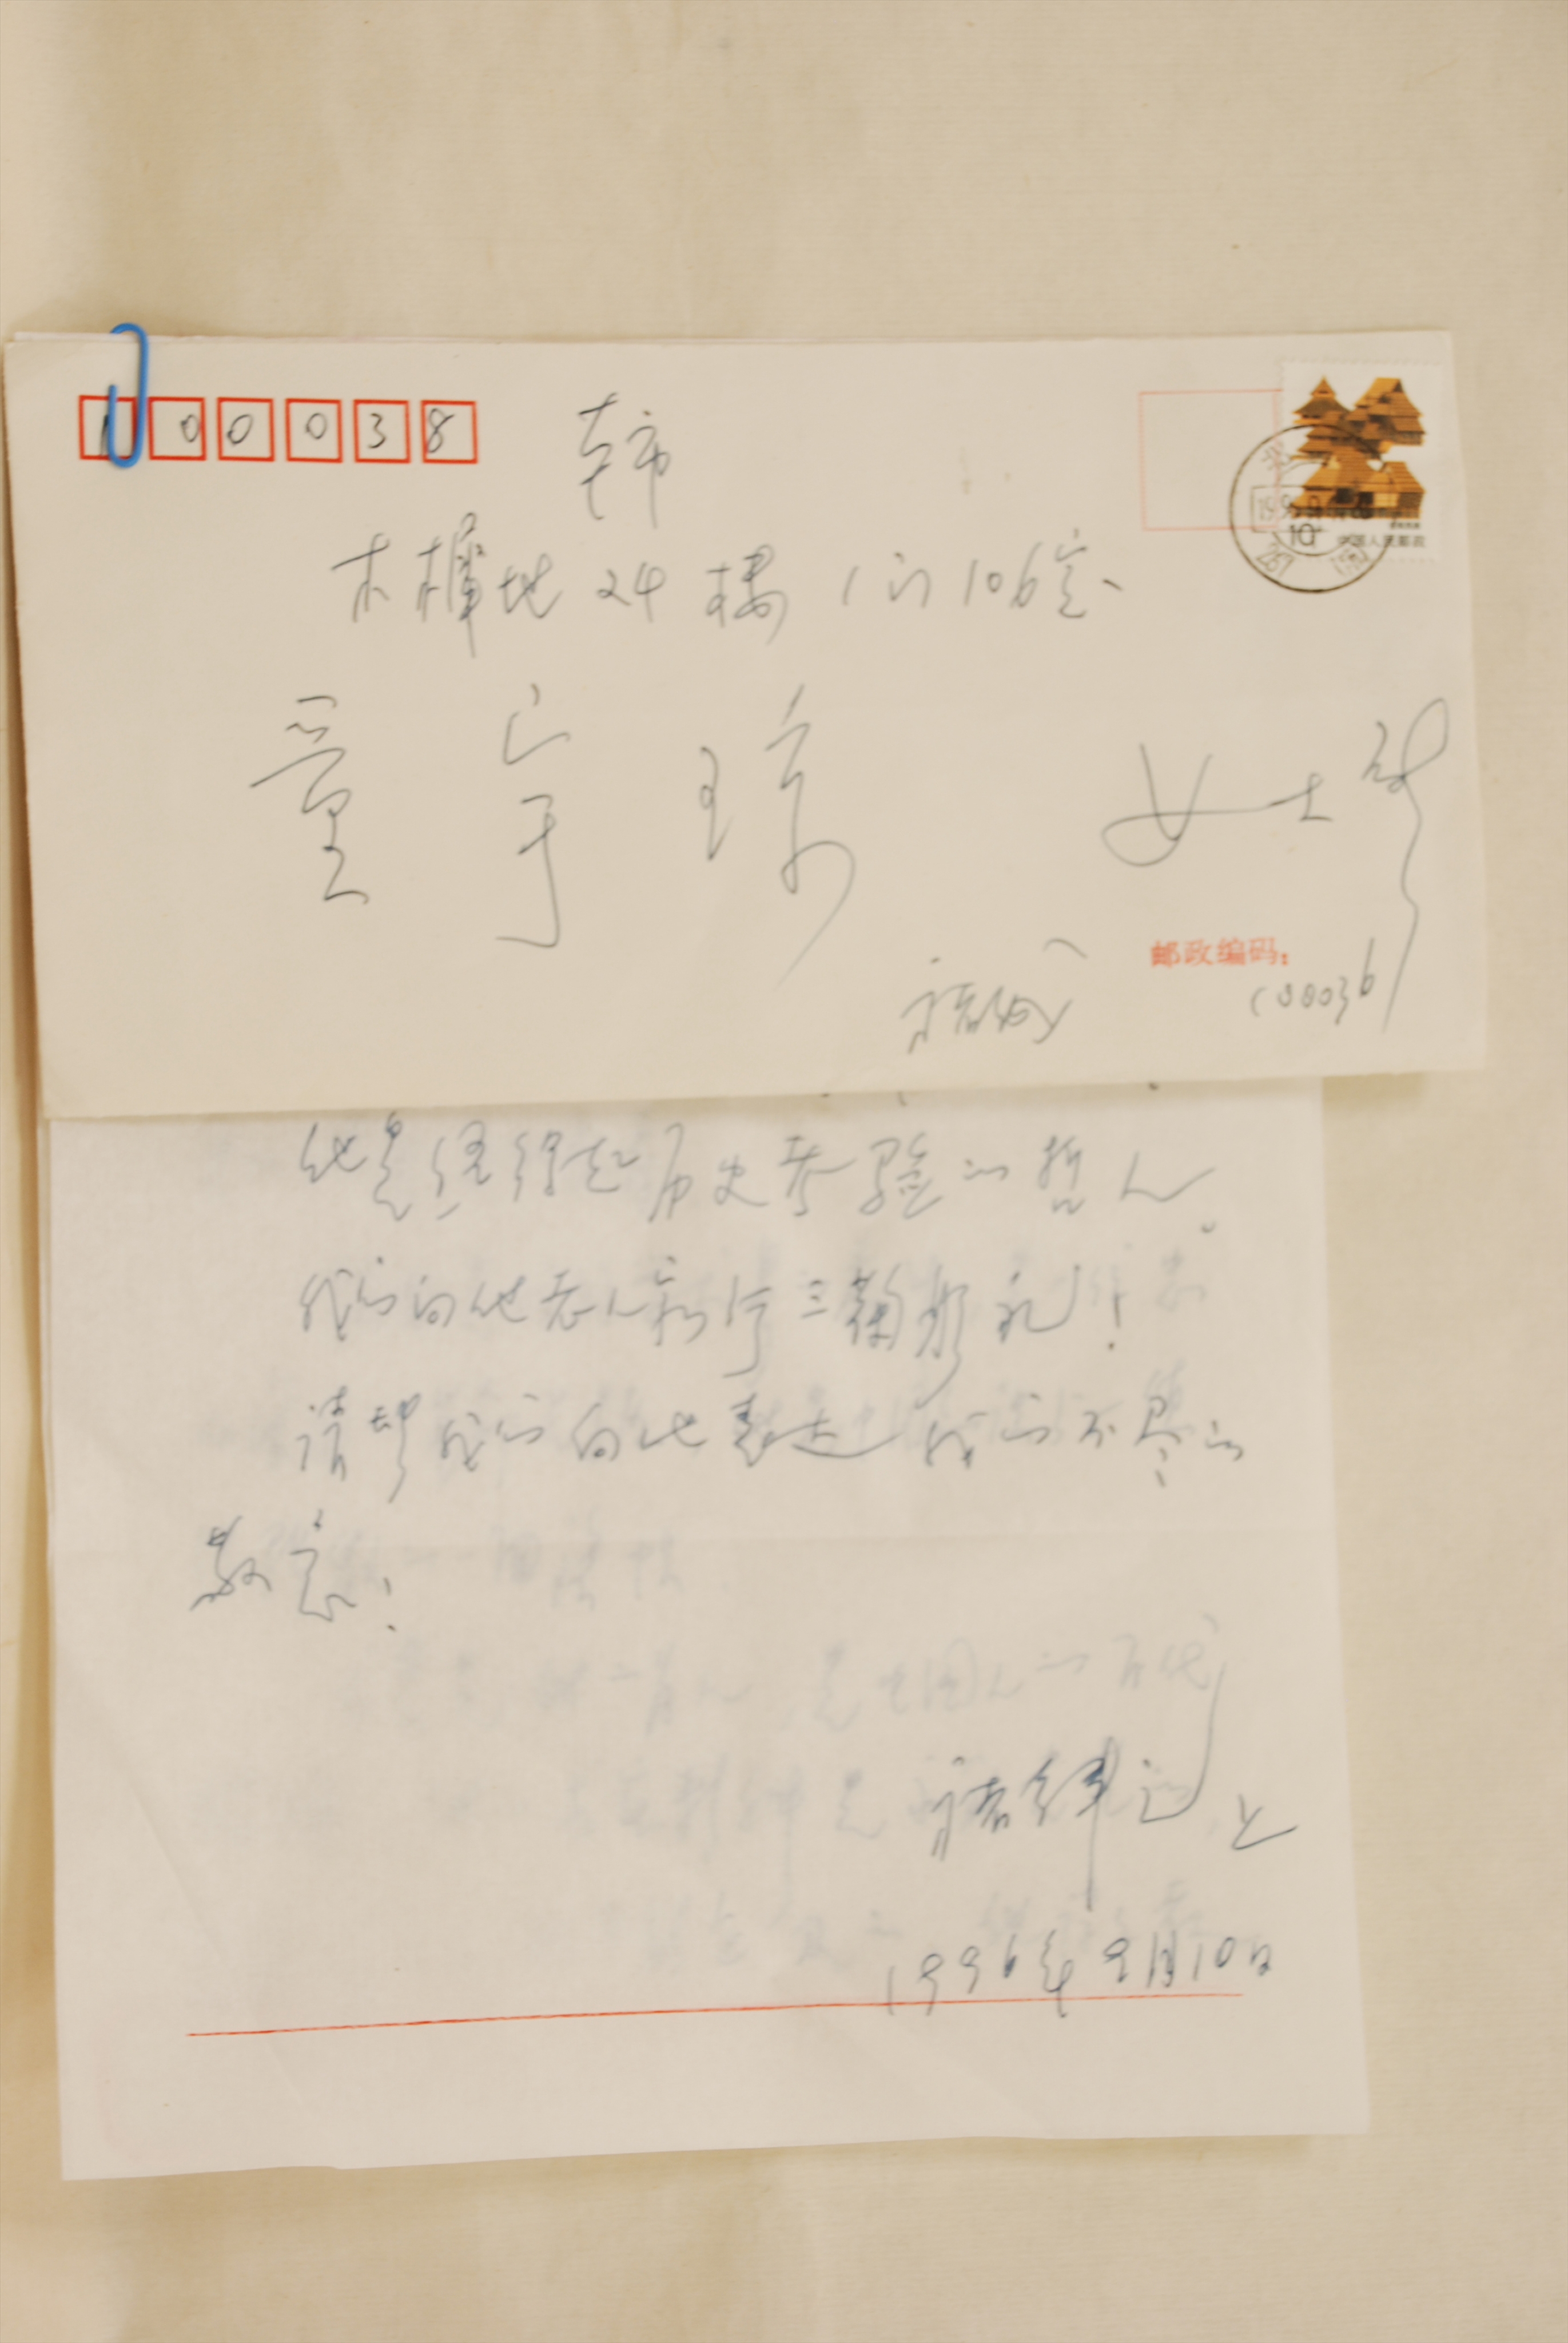 100038
本市
木樨地24楼1门106室
童宇琼 女士
邮政编码:
100036
北京
10
中国人民邮政
他是经得起历史考验的哲人。
我们向他老人家行三鞠躬礼!
请帮我们向他表达我们不尽的
敬意!
上
1996年9月10日